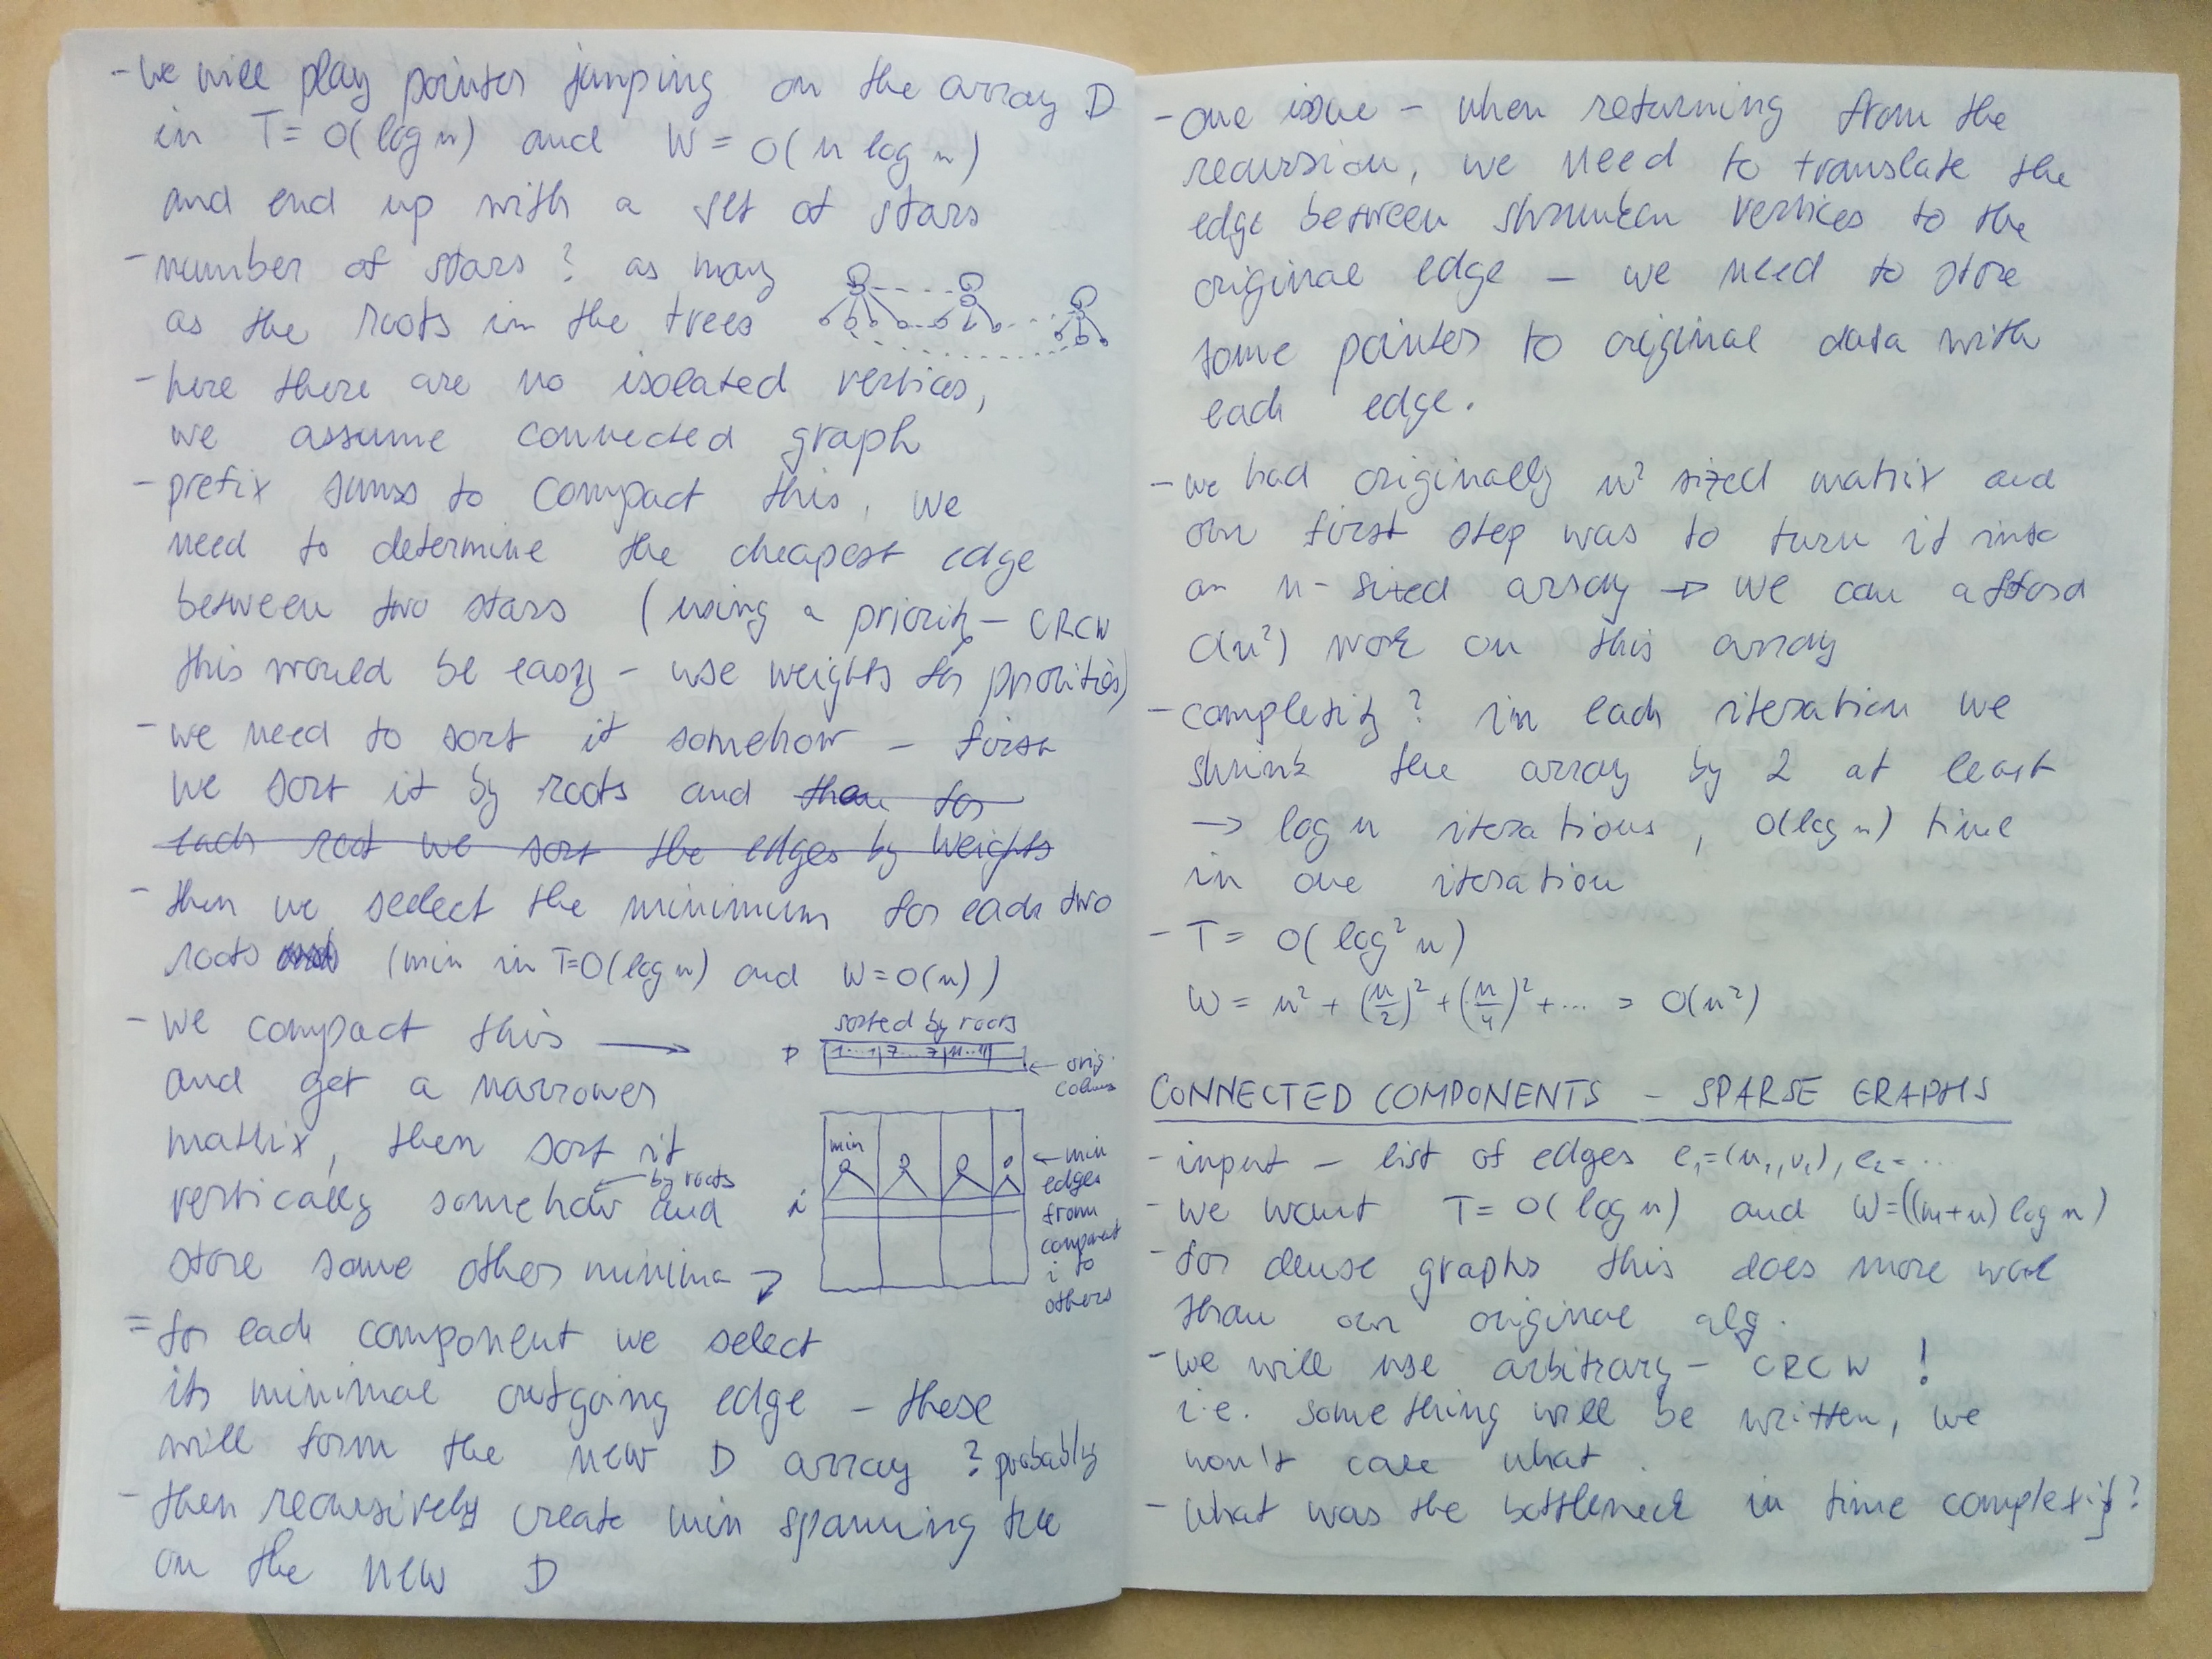 - we will play pointer jumping on the array D
in T = O(log n) and W = O(n log n)
and end up with a set of stars
- number of stars? as many
as the roots in the trees
- here there are no isolated vertices,
we assume connected graph
- prefix sums to compact this, we
need to determine the cheapest edge
between two stars (using a priority - CRCW
this would be easy - use weights for priorities)
- we need to sort it somehow - first
we sort it by roots and then for
each root we sort the edges by weights
- then we select the minimum for each two
roots (min in T=O(log n) and W=O(n))
- we compact this →
and get a narrower
matrix, then sort it
vertically somehow and
← by roots
store some other minima →
= for each component we select
its minimal outgoing edge - these
will form the new D array ? probably
- then recursively create min spanning tree
on the new D
sorted by roots
D 1...1 | 7...7 | 11...11
← orig.
columns
min
i
← min
edges
from
component
i to
others
- one issue - when returning from the
recursion, we need to translate the
edge between shrunken vertices to the
original edge - we need to store
some pointer to original data with
each edge.
- we had originally n² sized matrix and
our first step was to turn it into
an n-sized array → we can afford
O(n²) work on this array
- complexity? in each iteration we
shrink the array by 2 at least
→ log n iterations, O(log n) time
in one iteration
- T = O(log² n)
W = n² + (n/2)² + (n/4)² + ... = O(n²)
CONNECTED COMPONENTS - SPARSE GRAPHS
- input - list of edges e₁=(u₁,v₁), e₂=...
- we want T = O(log n) and W=((m+n) log n)
- for dense graphs this does more work
than our original alg.
- we will use arbitrary - CRCW !
i.e. something will be written, we
won't care what.
- what was the bottleneck in time complexity?